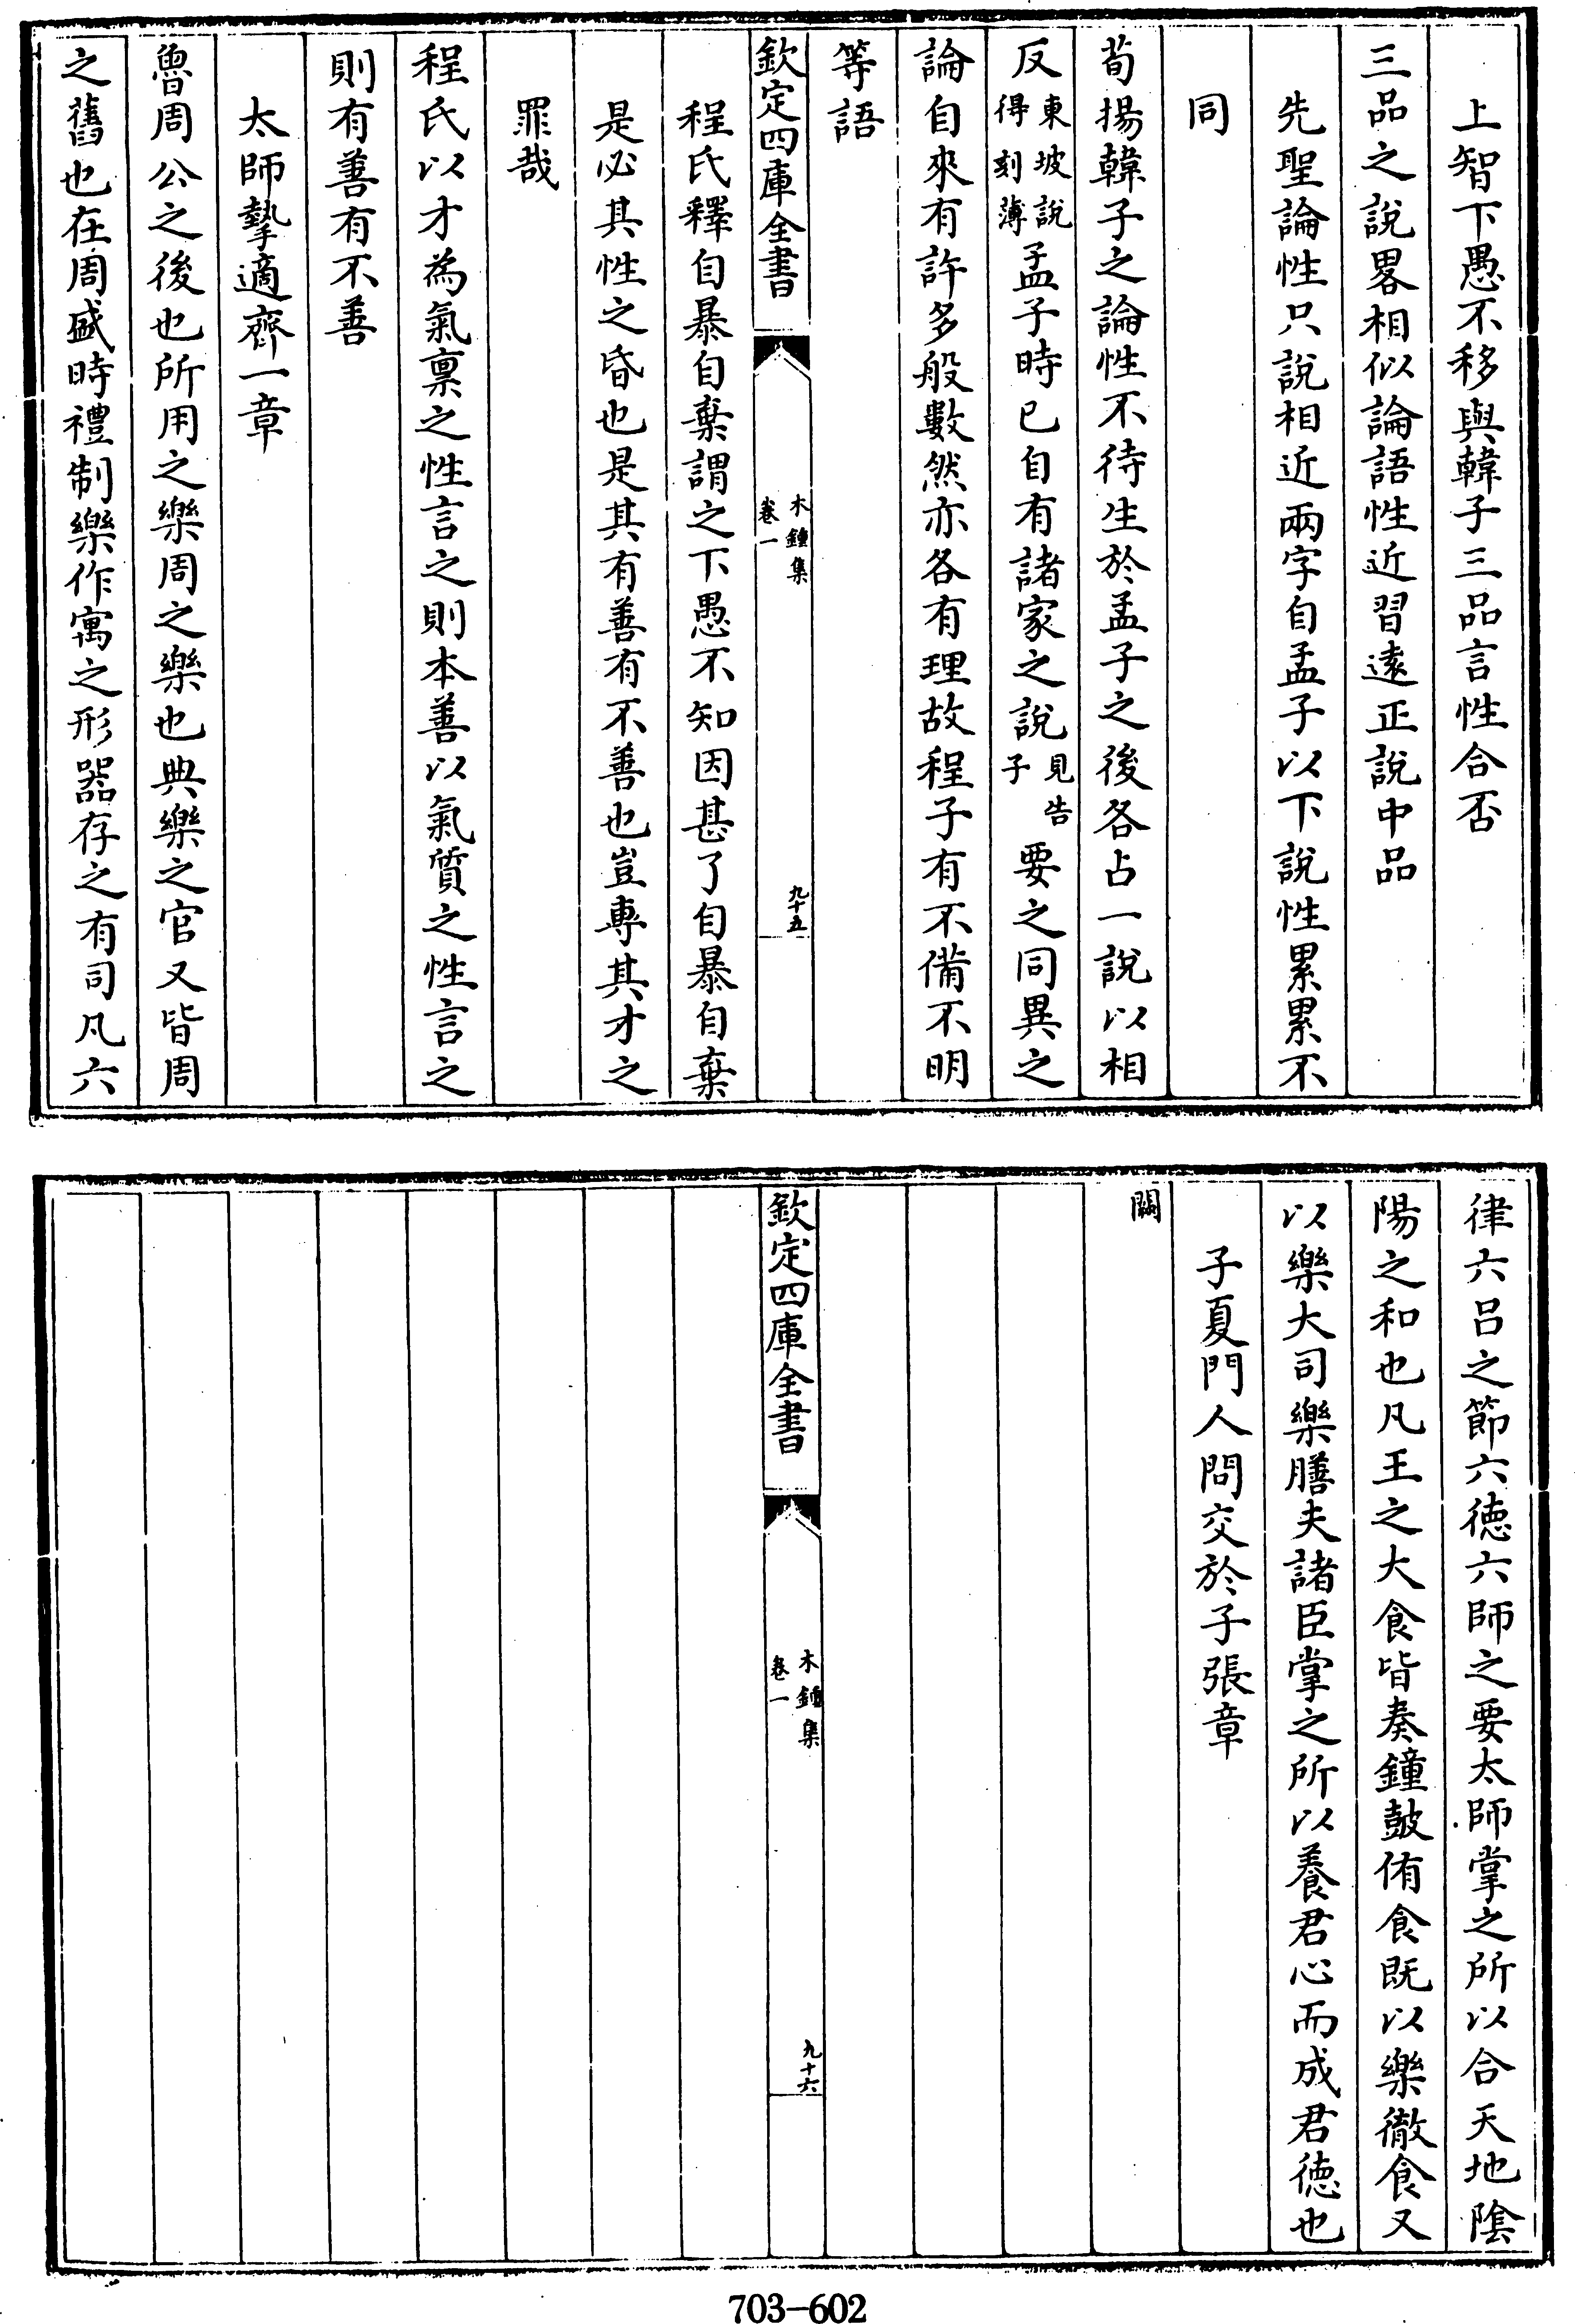 上智下愚不移與韓子三品言性合否
三品之說畧相似論語性近習遠正說中品
先聖論性只說相近兩字自孟子以下說性累累不
同
荀揚韓子之論性不待生於孟子之後各占一說以相
反東坡說得刻薄孟子時已自有諸家之說見告子要之同異之
論自來有許多般數然亦各有理故程子有不備不明
等語
欽定四庫全書
木鍾集
卷一
九十五
程氏釋自暴自棄謂之下愚不知因甚了自暴自棄
是必其性之昏也是其有善有不善也豈專其才之
罪哉
程氏以才為氣禀之性言之則本善以氣質之性言之
則有善有不善
太師摯適齊一章
魯周公之後也所用之樂周之樂也典樂之官又皆周
之舊也在周盛時禮制樂作寓之形器存之有司凡六
律六呂之節六徳六師之要太師掌之所以合天地隂
陽之和也凡王之大食皆奏鐘鼓侑食既以樂徹食又
以樂大司樂膳夫諸臣掌之所以養君心而成君徳也
子夏門人問交於子張章
闕
欽定四庫全書
木鍾集
卷一
九十六
703-602